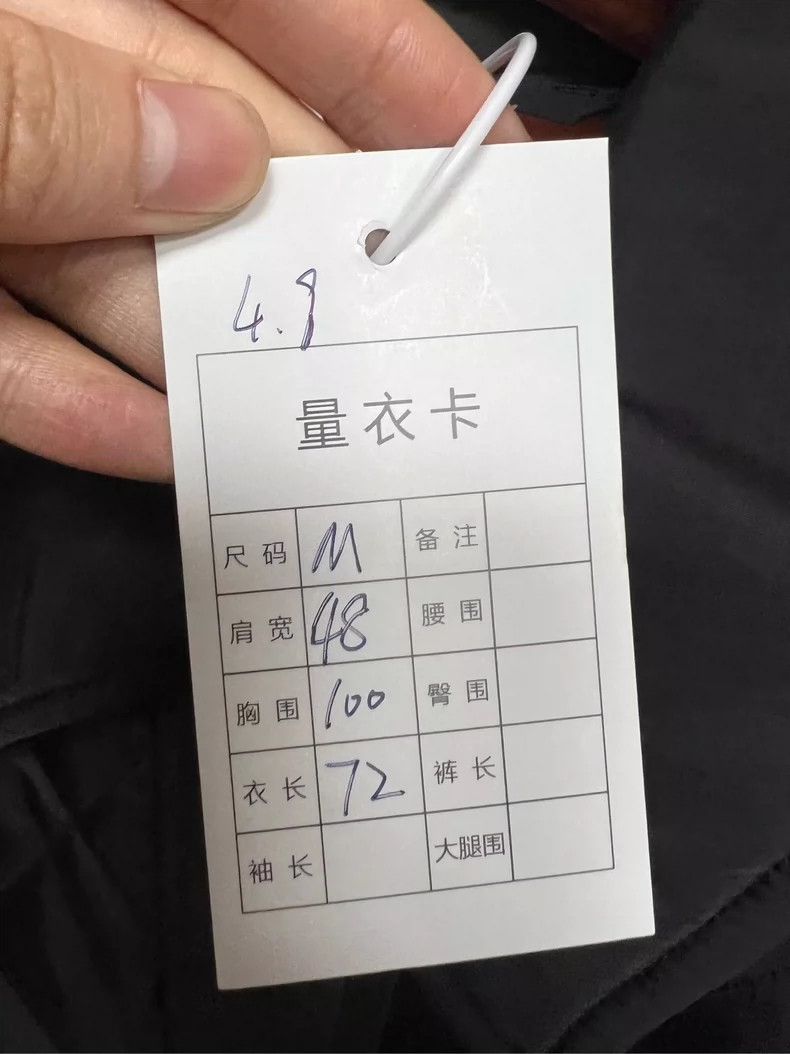 4.9
量衣卡
尺码 M 备注
肩宽 48 腰围
胸围 100 臀围
衣长 72 裤长
袖长 大腿围